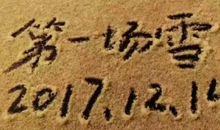 第一场雪
2017.12.14